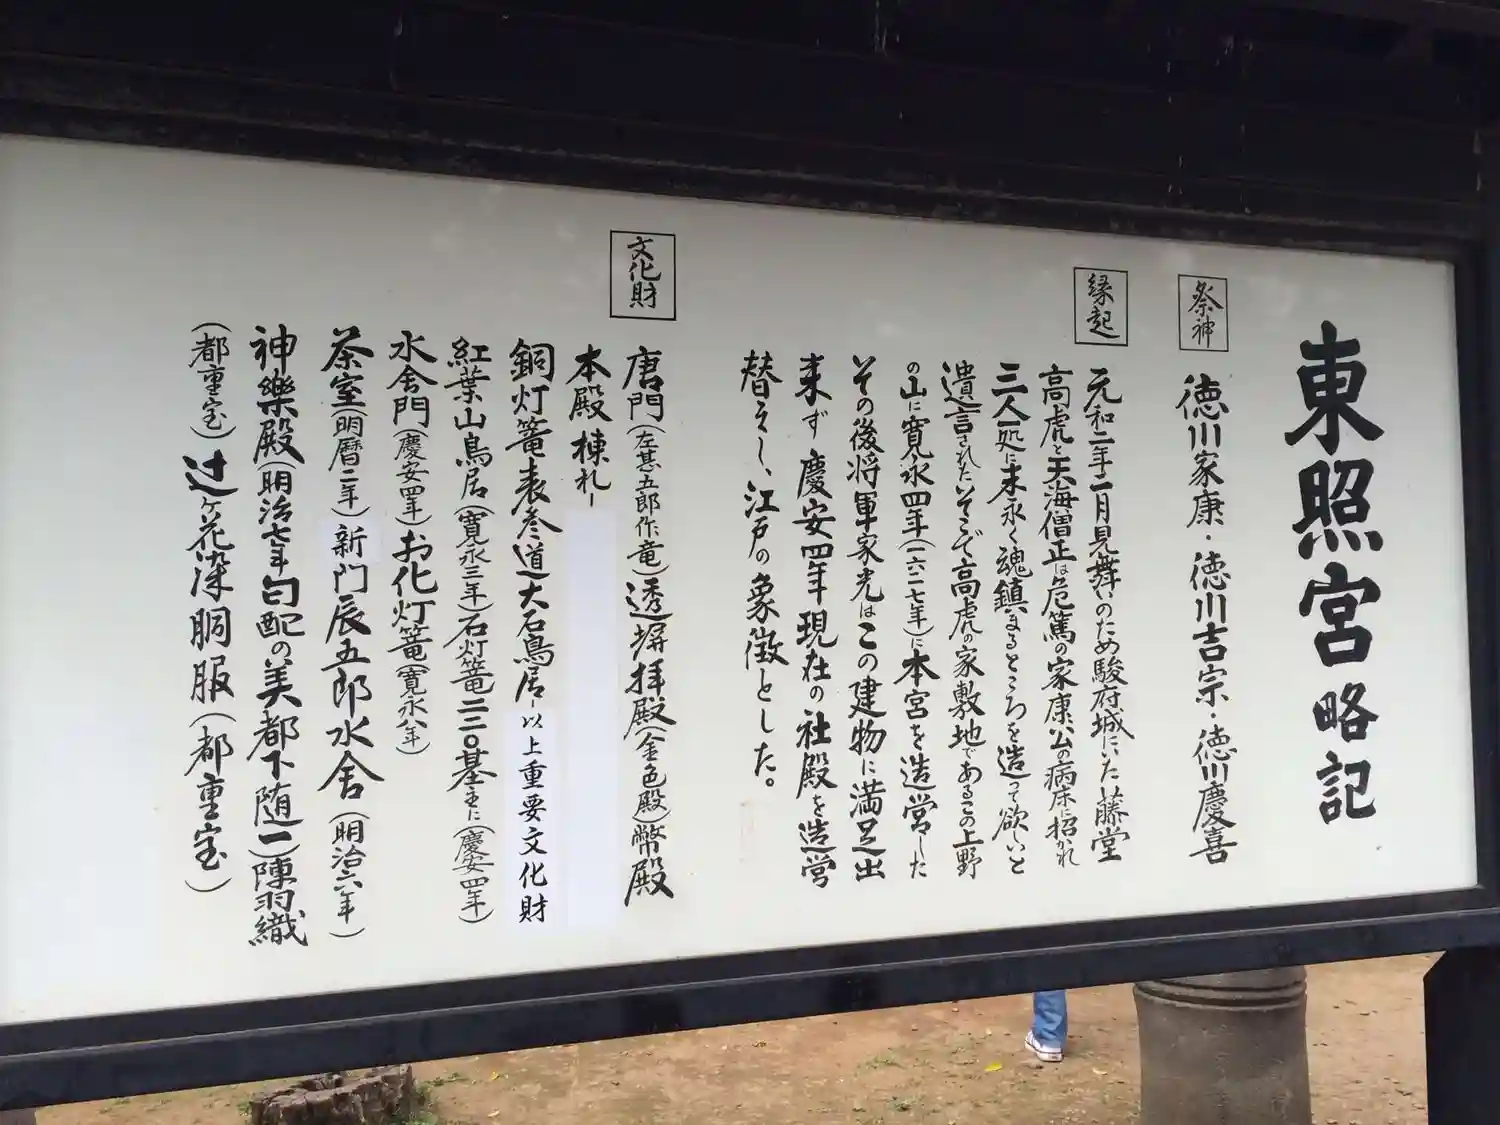 東照宮略記
祭神
徳川家康・徳川吉宗・徳川慶喜
縁起
元和二年二月見舞いのため駿府城にいた藤堂
高虎と天海僧正は危篤の家康公の病床に招かれ
三人一処に末永く魂鎮まるところを造って欲しいと
遺言されたそこで高虎の家敷地であるこの上野
の山に寛永四年(一六二七年)に本宮を造営した
その後将軍家光はこの建物に満足出
来ず慶安四年現在の社殿を造営
替えし、江戸の象徴とした。
文化財
唐門(左甚五郎作竜)透塀拝殿(金色殿)幣殿
本殿棟札ー
銅灯篭表参道大石鳥居ー以上重要文化財
紅葉山鳥居(寛永三年)石灯篭二二〇基主に(慶安四年)
水舎門(慶安四年)お化灯篭(寛永八年)
茶室(明暦二年)新門辰五郎水舎(明治六年)
神樂殿(明治七年勾配の美都下随一)陳羽織
(都重宝)辻ヶ花染胴服(都重宝)